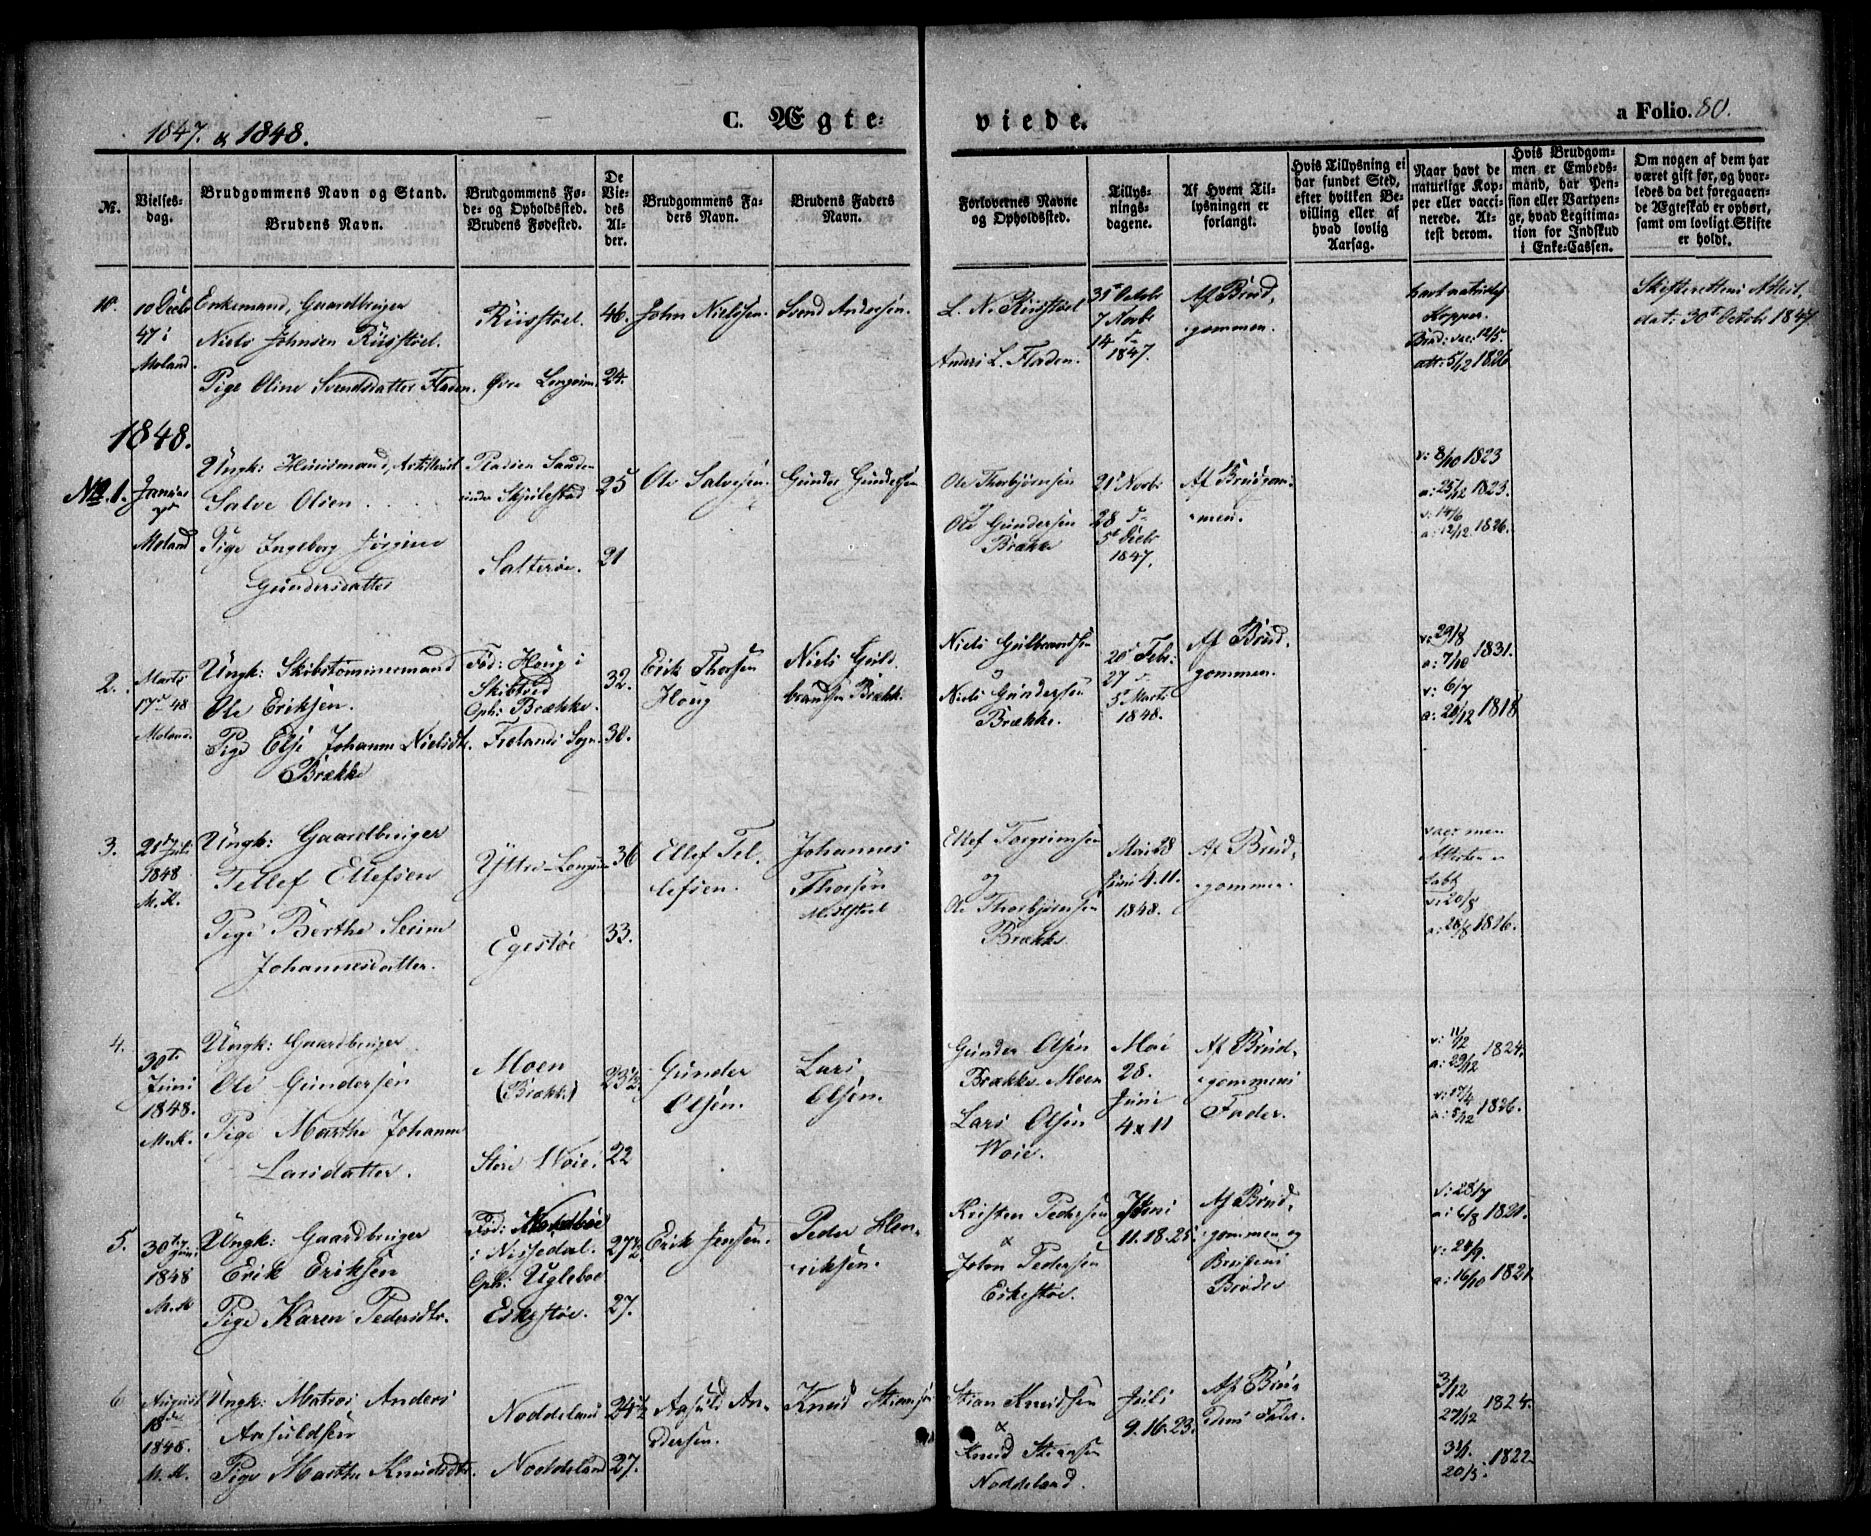 1847. & 1848.
C. Ægte viede.
a Folio. 80.
№.
Vielses-
dag.
Brudgommens Navn og Stand.
Brudens Navn.
Brudgommens Fø-
de- og Opholdssted.
Brudens Fødested.
De
Vie-
des
Al-
der.
Brudgommens Fa-
ders Navn.
Brudens Faders
Navn.
Forlovernes Navne
og Opholdssted.
Tillys-
nings-
dagene.
Af Hvem Til-
lysningen er
forlangt.
Hvis Tillysning ei
har fundet Sted,
efter hvilken Be-
villing eller af
hvad lovlig
Aarsag.
Naar havt de
naturlige Kop-
per eller vacci-
nerede. At-
test derom.
Hvis Brudgom-
men er Embeds-
mand, har Pen-
sion eller Vartpen-
ge, hvad Legitima-
tion for Indskud
i Enke-Cassen.
Om nogen af dem har
været gift før, og hvor-
ledes da det foregaaen-
de Ægteskab er ophørt,
samt om lovligt Skifte
er holdt.
10.
10 Decbr
47 i
Moland.
Enkemand, Gaardbruger
Niels Johnsen Riisstøel.
Pige Oline Svendsdatter Fladen.
Riisstøel.
Øvre Longum
46.
24.
John Nielsen.
Svend Andersen.
L. N. Riisstøel
Anders L. Fladen.
31te Octobr
7 Novbr
14 d
1847.
Af Brud-
gommen.
havt naturlige
Kopper.
Brud: vac: 12/5.
att: 5/12 1826
Skifterettens Attest,
dat: 30te Octobr 1847
1848.
No. 1.
Januar
Moland
Ungk: Huusmand, Artillerist
Salve Olsen.
Pige Ingeborg Jørgine
Gundersdatter
Pladsen Sanden
under Skjulestad
Salterøe.
25
21
Ole Salvesen.
Gunder Gundersen
Ole Thorbjørnsen
og
Ole Gundersen
Brække
21de Novbr
28 d
5te Decbr
1847.
Af Brudgom-
men.
v: 8/10 1823
a: 25/12 1823.
v: 14/6
a: 12/12 1826.
2.
Marts
17de 48
Moland.
Ungk: Skibstømmermand
Ole Eriksen.
Pige Else Johanne Nielsdtr.
Brække
Fød: Houg i
Skibtved
Oph: Brække.
Frolands Sogn
32.
30.
Erik Thorsen
Houg
Niels Guld-
brandsen Brække.
Niels Gulbrandsen
og
Niels Gundersen
Brække.
20de Febr:
27 d
5te Marts
1848.
Af Brud-
gommen.
v: 29/8
a: 7/10 1831.
v: 6/7
a: 20/12 1818
3.
21de Juli
1848
M.K.
Ungk: Gaardbruger
Tellef Ellefsen
Pige Berthe Serine
Johannesdatter.
Yttre-Longum
Egestøe
36
33.
Ellef Tel-
lefsen.
Johannes
Thorsen
Ellef Torgrimsen
og
Ole Thorbjørnsen
Brække.
Mai 28
Juni 4. 11.
1848.
Af Brud-
gommen.
vacc men
Attesten
tabt
v: 20/8
a: 28/8 1816.
4.
30te
Juni
1848.
M.K.
Ungk: Gaardbruger
Ole Gundersen
Pige Marthe Johanne
Larsdatter.
Moen
(Brække)
Store Woie.
23½
22
Gunder
Olsen.
Lars
Olsen.
Gunder Olsen
Brække-Moen
Lars Olsen
Woie.
Mai
28.
Juni
4 & 11
Af Brud-
gommens
Fader.
v: 11/12
a: 29/12 1824.
v: 17/4
a: 5/12 1826.
5.
30te Juni
1848
M.K
Ungk: Gaardbruger
Erik Eriksen
Pige Karen Pedersdtr.
Fød:
i Nissedal.
Oph: Ugleboe
Eskestøe.
27½
27.
Erik Jensen.
Peder Hen-
riksen.
Kristen Pedersen
&
John Pedersen
Eskestøe.
Juni
11. 18. 25
Af Brud-
gommen og
Brudens
Broder
v: 28/7
a: 6/8 1821.
v: 24/9.
a: 16/10 1821
6
August
18de
1848.
M.K.
Ungk: Matros Anders
Aasuldsen
Pige Marthe Knudsdtr.
Noddeland
Noddeland
24½
27.
Aasuld An-
dersen.
Knud Stiansen
Stian Knudsen
&
Knud Stiansen
Noddeland.
Juli
9. 16. 23.
Af Bru-
dens Fader.
3/12
27/12 1824.
31/1.
20/3. 1822